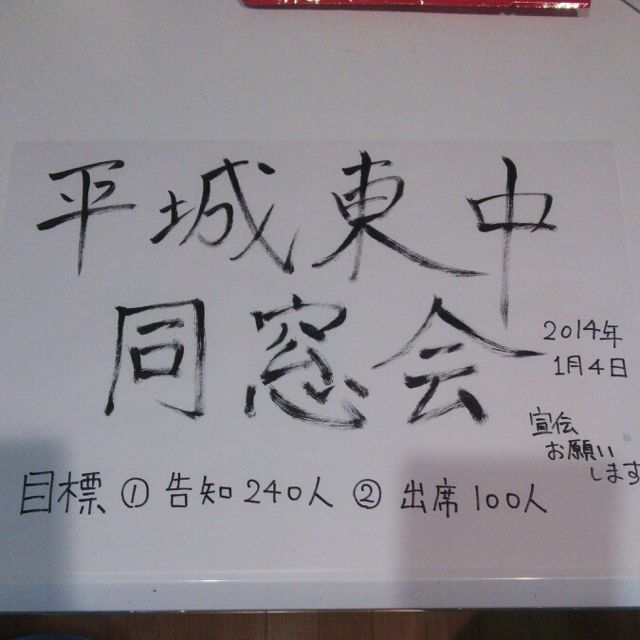 平城東中
同窓会
2014年
1月4日
宣伝
お願い
します
目標 ① 告知 240人 ② 出席 100人